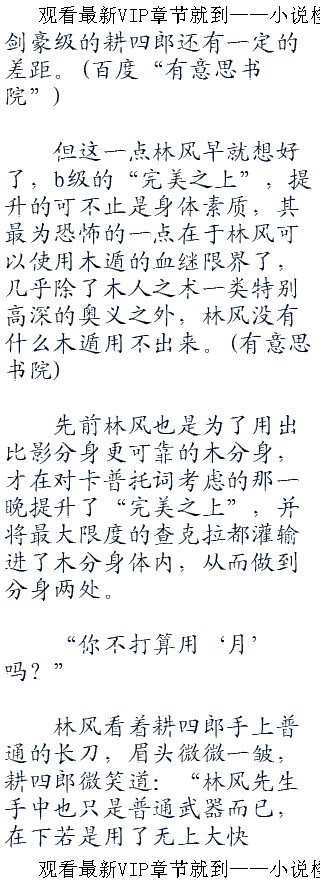 观看最新VIP章节就到——小说
剑豪级的耕四郎还有一定的
差距。(百度“有意思书
院”)
但这一点林风早就想好
了，b级的“完美之上”，提
升的可不止是身体素质，其
最为恐怖的一点在于林风可
以使用木遁的血继限界了，
几乎除了木人之术一类特别
高深的奥义之外，林风没有
什么木遁用不出来。(有意思
书院)
先前林风也是为了用出
比影分身更可靠的木分身，
才在对卡普托词考虑的那一
晚提升了“完美之上”，并
将最大限度的查克拉都灌输
进了木分身体内，从而做到
分身两处。
“你不打算用‘月’
吗？”
林风看着耕四郎手上普
通的长刀，眉头微微一皱，
耕四郎微笑道：“林风先生
手中也只是普通武器而已，
在下若是用了无上大快
观看最新VIP章节就到——小说